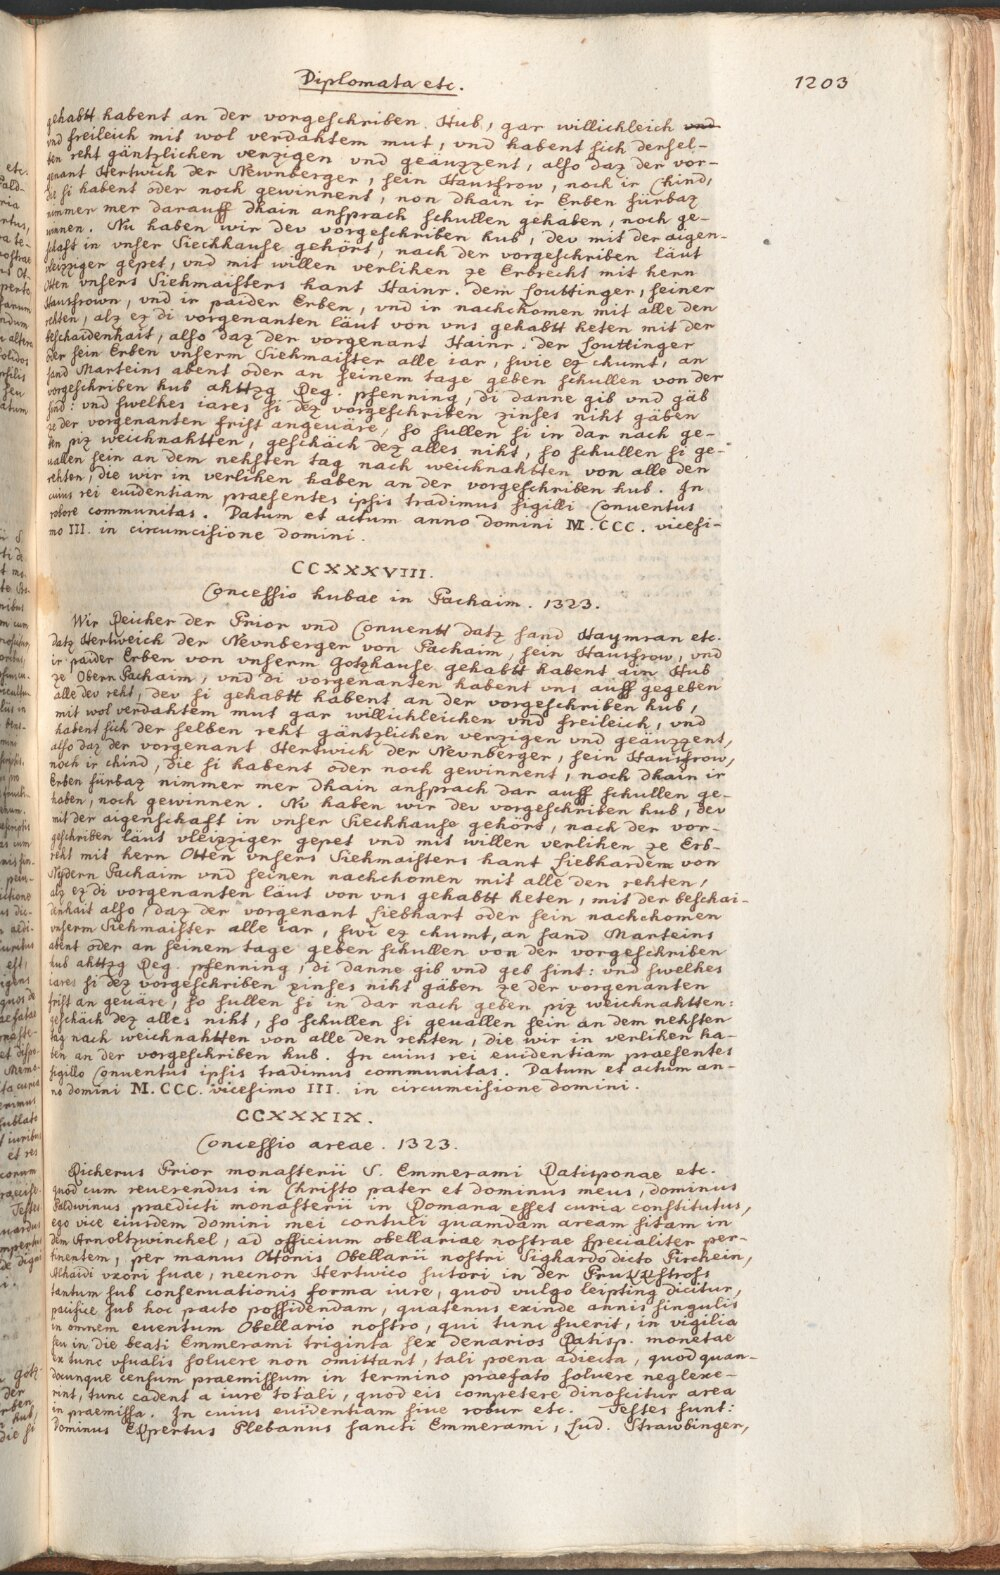 Diplomata etc.
1203
gehabtt habent an der vorgeschriben Hub, gar willichleich vnd
vnd freileich mit wol verdahtem mut, vnd habent sich dersel-
ben reht gäntzlichen verzigen vnd geäuzzent, also daz der vor-
genant Hertwich der Newnberger, sein Hausfrow, noch ir Chind,
die si habent oder noch gewinnent, non dhain ir Erben fürbaz
nimmer mer darauff dhain ansprach schullen gehaben, noch ge-
winnen. Nu haben wir dev vorgeschriben hub, dev mit der aigen-
schaft in vnser Siechhause gehört, nach der vorgeschriben läut
vleizziger gepet, vnd mit willen verlihen ze Erbrecht mit hern
Otten vnsers Siehmaisters hant Hainr. dem Louttinger, seiner
Hausfrown, vnd ir paider Erben, vnd ir nachchomen mit alle den
rehten, alz ez di vorgenanten läut von vns gehabtt heten mit der
beschaidenhait, also daz der vorgenant Hainr. der Louttinger
oder sein Erben vnserm Siehmaister alle iar, swie ez chumt, an
sand Marteins abent oder an seinem tage geben schullen von der
vorgeschriben hub ahttzg Reg. pfenning, di danne gib vnd gäb
sind: vnd swelhes iares si dez vorgeschriben zinses niht gäben
ze der vorgenanten frist angeuäre, so sullen si in dar nach ge-
ben piz weichnahtten, geschäch dez alles niht, so schullen si ge-
uallen sein an dem nehsten tag nach weichnahtten von alle den
rehten, die wir in verlihen haben an der vorgeschriben hub. In
cuius rei euidentiam praesentes ipsis tradimus sigilli Conuentus
robore communitas. Datum et actum anno domini M.CCC. vicesi-
mo III. in circumcisione domini.
CCXXXVIII.
Concessio hubae in Pachaim. 1323.
Wir Reicher der Prior vnd Conuentt datz sand Haymran etc.
datz Hertweich der Nevnberger von Pachaim, sein Hausfrow, vnd
ir paider Erben von vnserm Gotzhause gehabtt habent ain Hub
ze Obern Pachaim, vnd di vorgenanten habent vns auff gegeben
alle dev reht, dev si gehabtt habent an der vorgeschriben hub,
mit wol verdahtem mut gar willichleichen vnd freileich, vnd
habent sich der selben reht gäntzlichen verzigen vnd geäuzzent,
also daz der vorgenant Hertwich der Nevnberger, sein Hausfrow,
noch ir chind, die si habent oder noch gewinnent, noch dhain ir
Erben fürbaz nimmer mer dhain ansprach dar auff schullen ge-
haben, noch gewinnen. Nv haben wir dev vorgeschriben hub, dev
mit der aigenschaft in vnser Siechhause gehört, nach der vor-
geschriben läut vleizziger gepet vnd mit willen verlihen ze Erb-
reht mit hern Otten vnsers Siehmaisters hant Liebhardem von
Nydern Pachaim vnd seinen nachchomen mit alle den rehten,
alz ez di vorgenanten läut von vns gehabtt heten, mit der beschai-
denhait also, daz der vorgenant Liebhart oder sein nachchomen
vnserm Siehmaister alle iar, swi ez chumt, an sand Marteins
abent oder an seinem tage geben schullen von der vorgeschriben
hub ahttzg Reg. pfenning, di danne gib vnd geb sint: vnd swelhes
iares si dez vorgeschriben zinses niht gäben ze der vorgenanten
frist an geuäre, so sullen si in dar nach geben piz weichnahtten:
geschäch dez alles niht, so schullen si geuallen sein an dem nehsten
tag nach weichnahtten von alle den rehten, die wir in verlihen ha-
ben an der vorgeschriben hub. In cuius rei euidentiam praesentes
sigillo Conuentus ipsis tradimus communitas. Datum et actum an-
no domini M.CCC. vicesimo III. in circumcisione domini.
CCXXXIX.
Concessio areae. 1323.
Richerus Prior monasterii S. Emmerami Ratisponae etc.
quod cum reuerendus in Christo pater et dominus meus, dominus
Baldwinus praedicti monasterii in Romana esset curia constitutus,
ego vice eiusdem domini mei contuli quamdam aream sitam in
dem Arnoltzwinchel, ad officium obellariae nostrae specialiter per-
tinentem, per manus Ottonis Obellarii nostri Sighardo dicto Pirchein,
Alhaidi vxori suae, necnon Hertwico sutori in der Prukkstross
tantum sub conseruationis forma iure, quod vulgo leipting dicitur,
pacifice sub hoc pacto possidendam, quatenus exinde annis singulis
in omnem euentum Obellario nostro, qui tunc fuerit, in vigilia
seu in die beati Emmerami triginta sex denarios Ratisp. monetae
ex tunc vsualis soluere non omittant, tali poena adiecta, quod quan-
documque censum praemissum in termino praefato soluere neglexe-
rint, tunc cadent a iure totali, quod eis competere dinoscitur area
in praemissa. In cuius euidentiam siue robur etc. Testes sunt:
dominus Ekpertus Plebanus sancti Emmerami, Lud. Strawbinger,